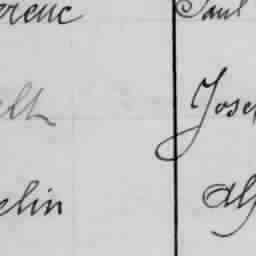 erenc Paul
elt Jose
elin Alf